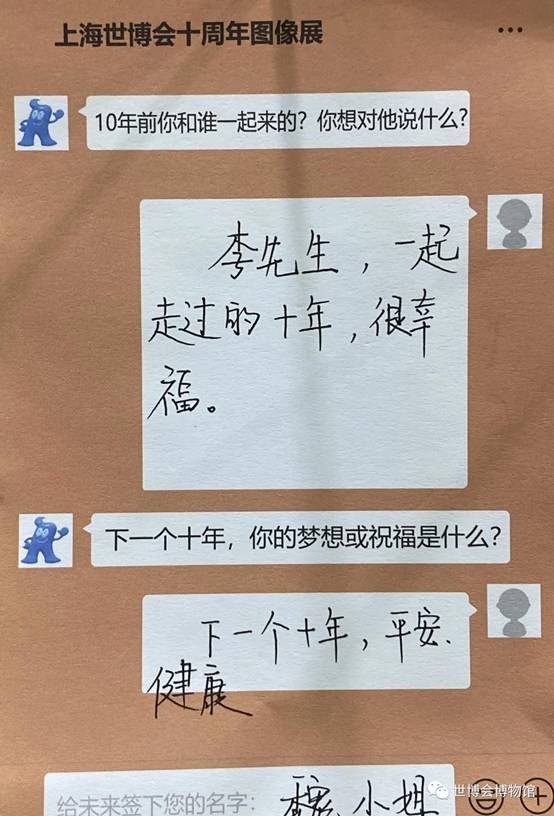 上海世博会十周年图像展
10年前你和谁一起来的？你想对他说什么？
李先生，一起
走过的十年，很幸
福。
下一个十年，你的梦想或祝福是什么？
下一个十年，平安、
健康
给未来签下您的名字：小姐
世博会博物馆